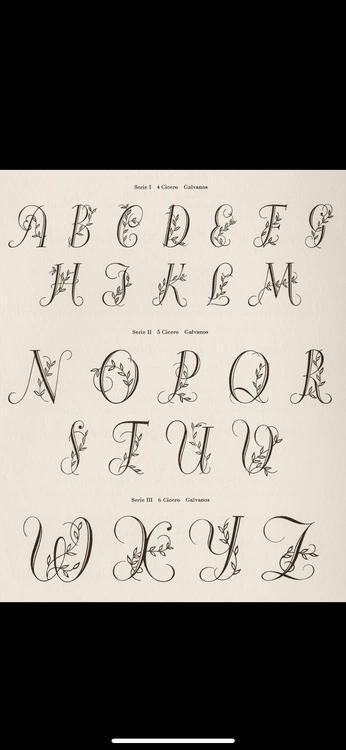 Serie I 4 Cicero Galvanos
A B C D E F G
H J K L M
Serie II 5 Cicero Galvanos
N O P Q R
S T U V
Serie III 6 Cicero Galvanos
W X Y Z